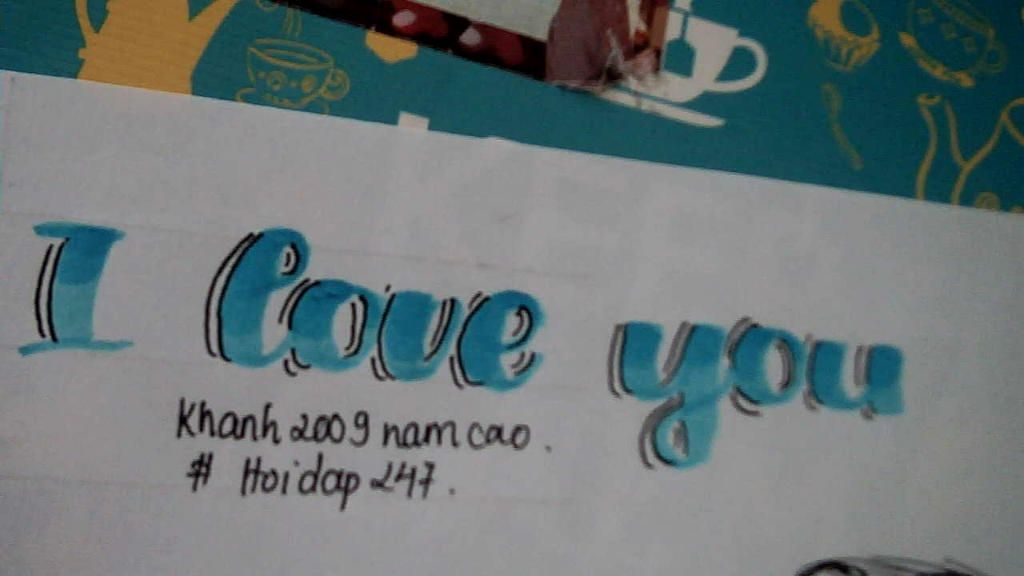 I love you
Khanh 2009 nam cao .
# Hoidap 247 .